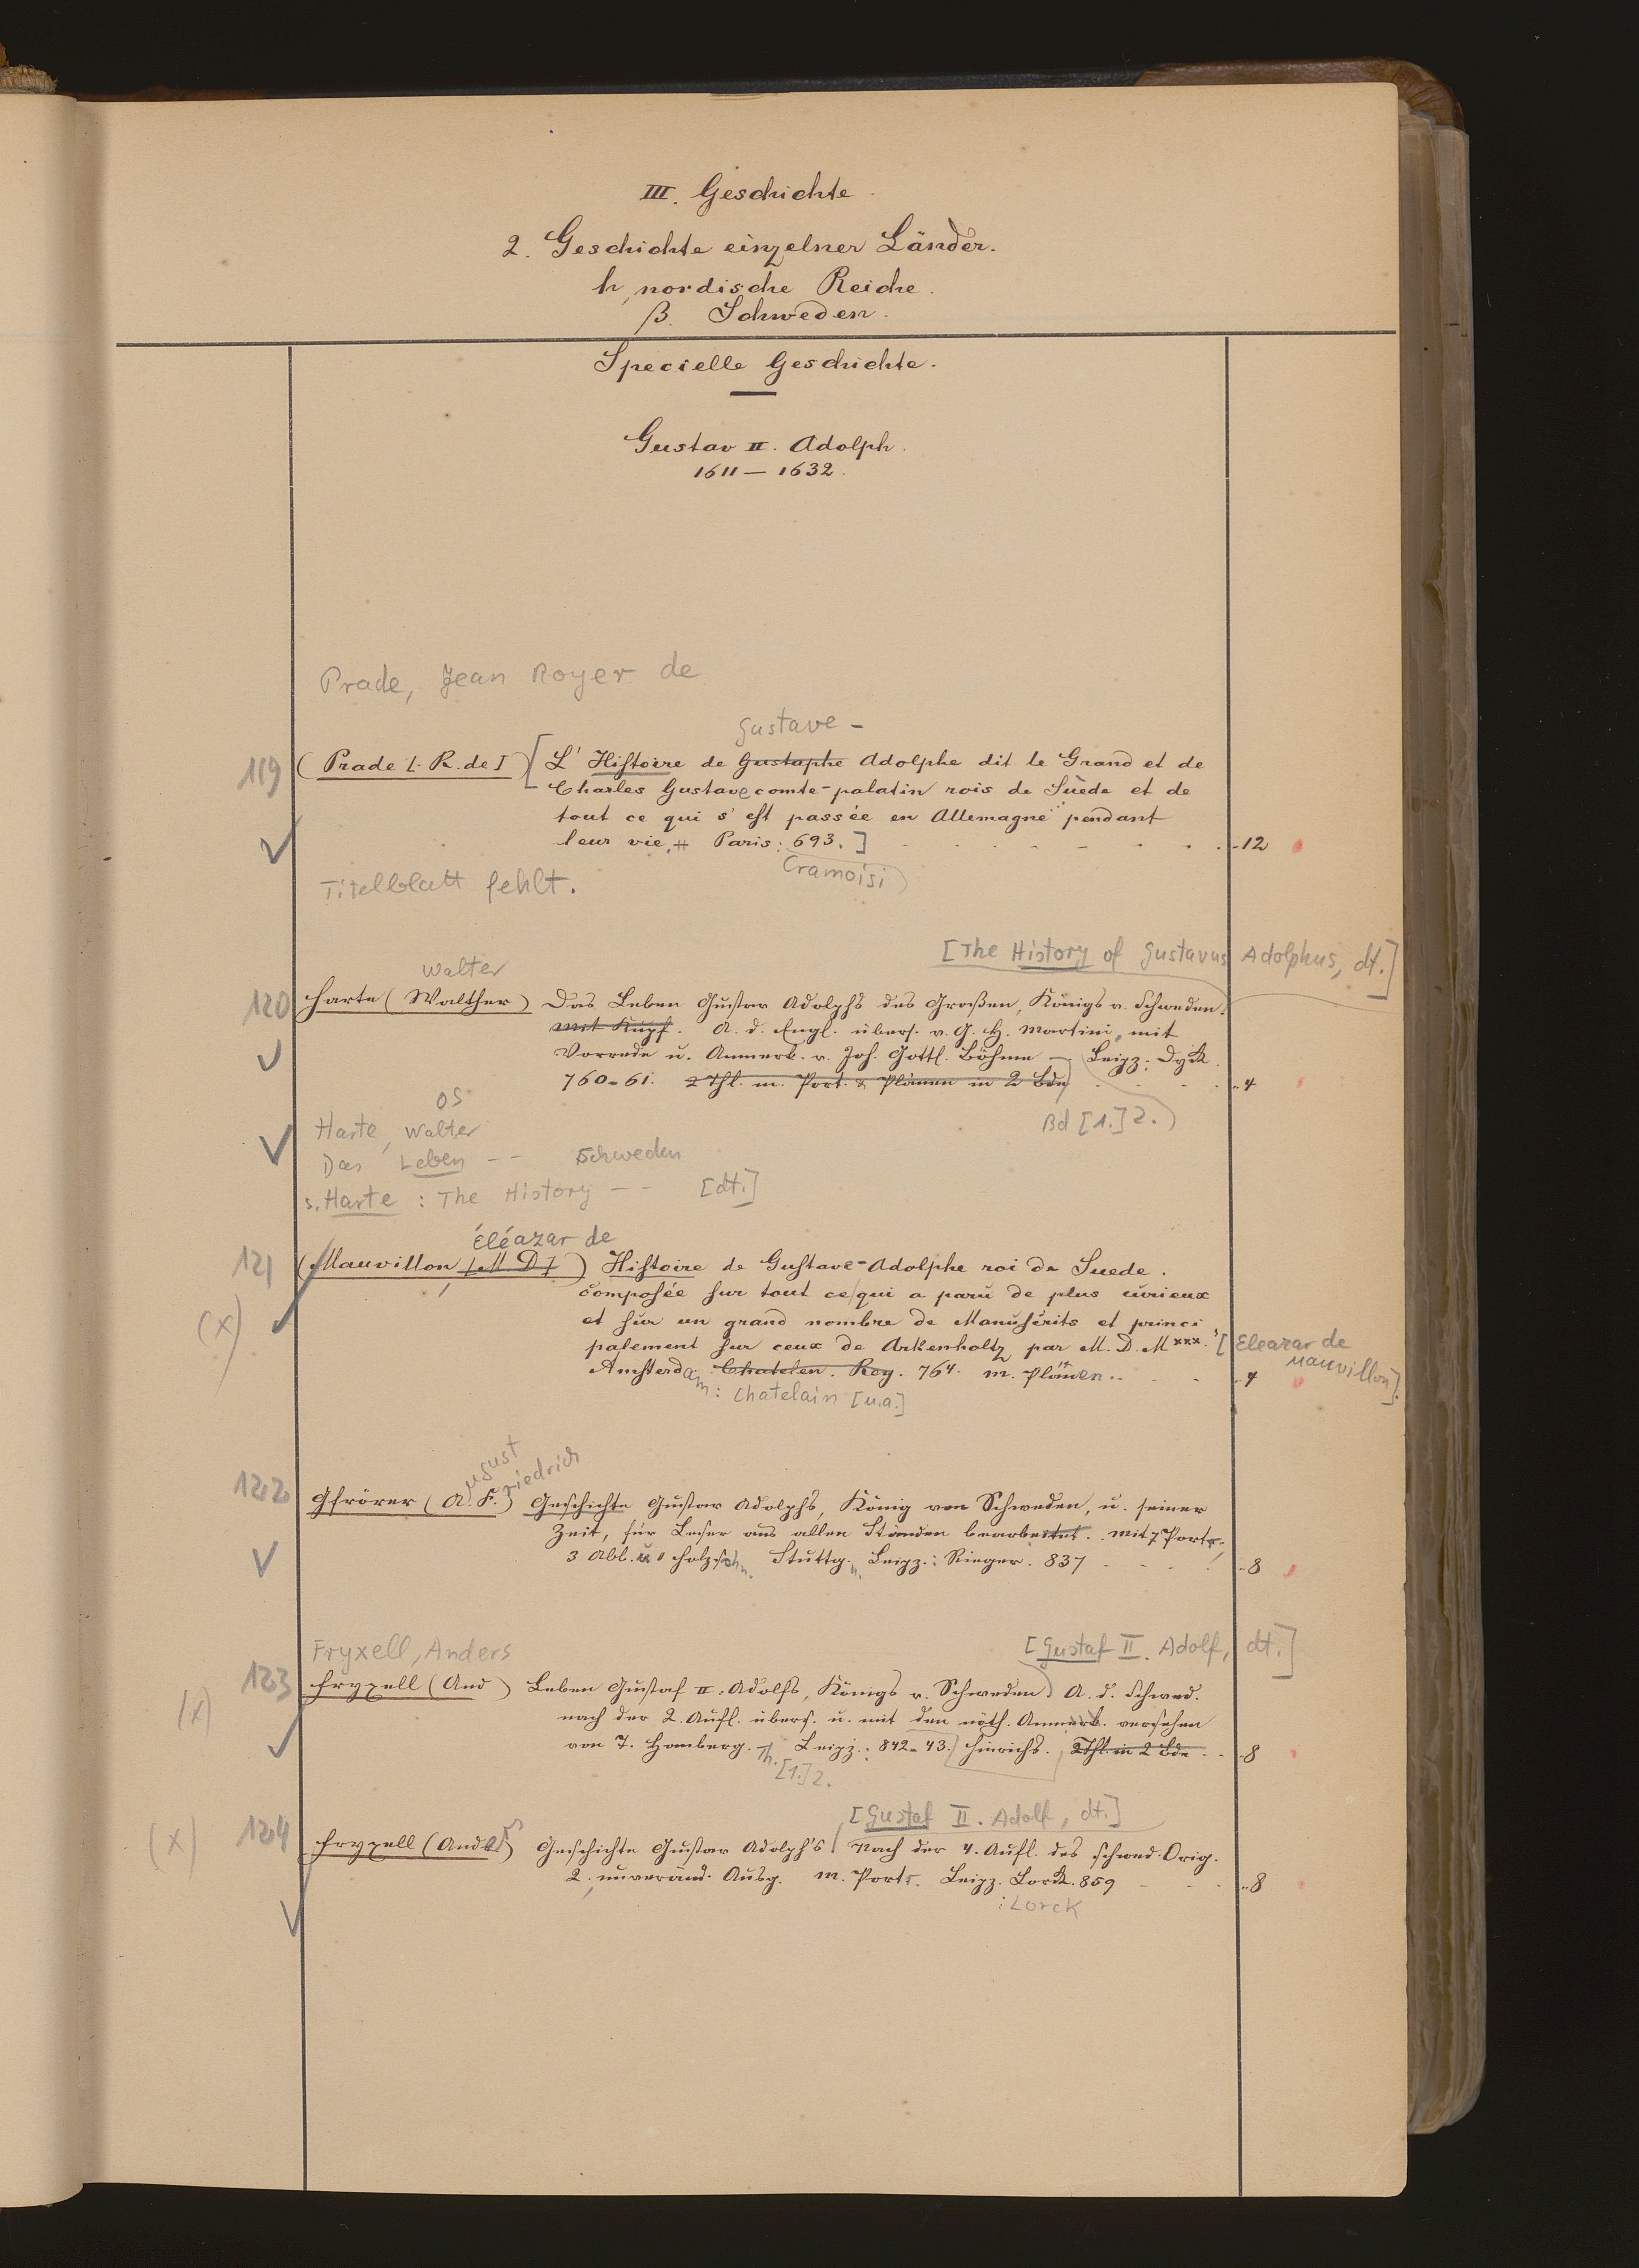 III. Geschichte
2. Geschichte einzelner Länder.
h, nordische Reiche.
β. Schweden.
Specielle Geschichte.
Gustav II. Adolph.
1611 – 1632.
Prade, Jean Royer de
Gustave –
119 (Prade [. R. de]) [L' Histoire de Gustaphe Adolphe dit le Grand et de
Charles Gustave comte-palatin rois de Suède et de
tout ce qui s'est passée en Allemagne pendant
leur vie. Paris: 693.] 12
Cramoisi
Titelblatt fehlt.
[The History of Gustavus Adolphus, dt.]
Walter
120 Harte (Walther) Das Leben Gustav Adolphs des Großen, Königs v. Schweden.
mit Kupf. A. d. Engl. übers. v. G. H. Martini, mit
Vorrede u. Anmerk. v. Joh. Gottl. Böhme – Leipz: Dyck.
760-61. 2 Thl. m. Port. & Plänen in 2 Bdn 4
OS
Bd [1.] 2.
Harte, Walter
Das Leben -- Schweden
s. Harte: The History -- [dt.]
Éléazar de
121 (Mauvillon, [M D]) Histoire de Gustave-Adolphe roi de Suede.
composée sur tout ce qui a paru de plus curieux
et sur un grand nombre de Manuscrits et princi
(x)
palement sur ceux de Arkenholtz par M. D. M xxx. [Eleazar de
Mauvillon].
Amsterdam: Chatelen. Rey. 764. m. Plänen. 4
: Chatelain [u.a.]
ugust
riedrich
122 Gfrörer (A. F.) Geschichte Gustav Adolphs, König von Schweden, u. seiner
Zeit, für Leser aus allen Ständen bearbeitet. mit 7 Portr.,
3 Abl. u. Holzschn. Stuttg. u. Leipz.: Rieger. 837 8
Fryxell, Anders
[Gustaf II. Adolf, dt.]
123 Fryxell (And) Leben Gustaf II. Adolfs, Königs v. Schweden. A. d. Schwed.
(x)
nach der 2. Aufl. übers. u. mit den nöth. Anmerk. versehen
von T. Homberg. Th. Leipz.: 842-43. Hinrichs. 2 Thl. in 2 Bdn 8
[1.] 2.
[Gustaf II. Adolf, dt.]
(x) 124 Fryxell (Anders) Geschichte Gustav Adolph's Nach der 4. Aufl. des schwed. Orig.
2. unveränd. Ausg. m. Portr. Leipz. Lorck. 859 8
: Lorck